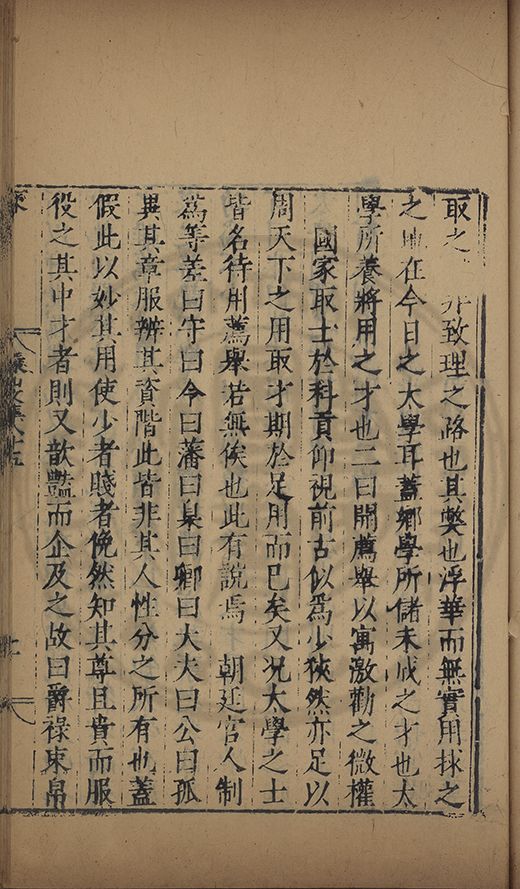 取之 非致理之路也其獘也浮華而無實用捄之
之地在今日之大學耳蓋鄉學所儲未成之才也太
學所養將用之才也二曰開薦舉以寓激勸之微權
國家取士於科貢仰視前古似為少狹然亦足以
周天下之用取才期於足用而已矣又况大學之士
皆名待用薦舉若無俟也此有說焉 朝廷官人制
為等差曰守曰令曰藩曰臬曰卿曰大夫曰公曰孤
異其章服辨其資階此皆非其人性分之所有也蓋
假此以妙其用使少者賤者俛然知其尊且貴而服
役之其中才者則又歆豔而企及之故曰爵祿束帛